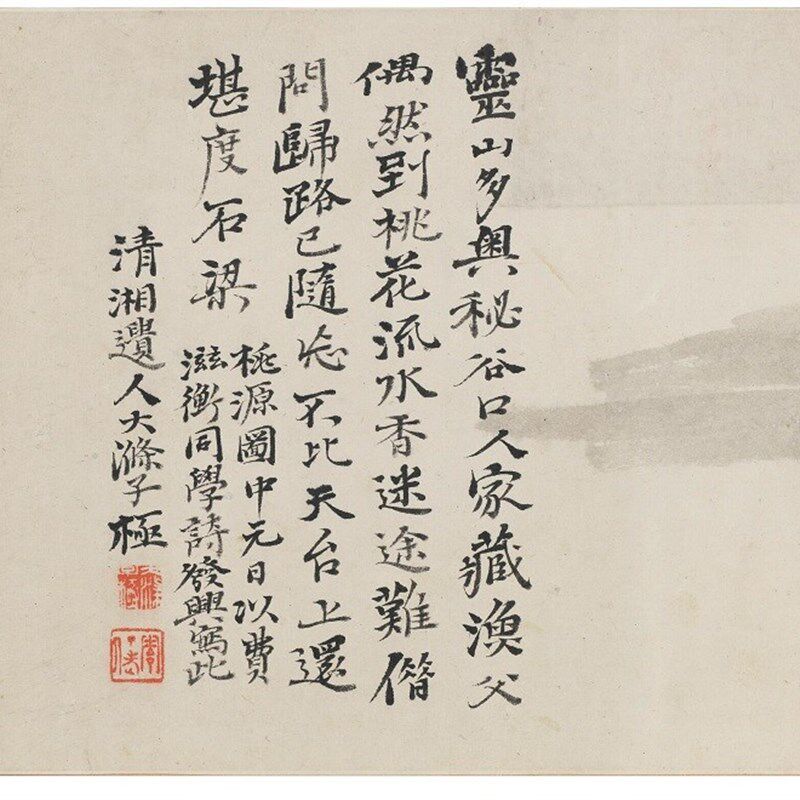 靈山多奧秘谷口人家藏漁父
偶然到桃花流水香迷途難僣
問歸路已隨忘不比天台上還
堪度石梁
桃源圖中元日以費
滋衡同學詩發興寫此
清湘遺人大滌子極